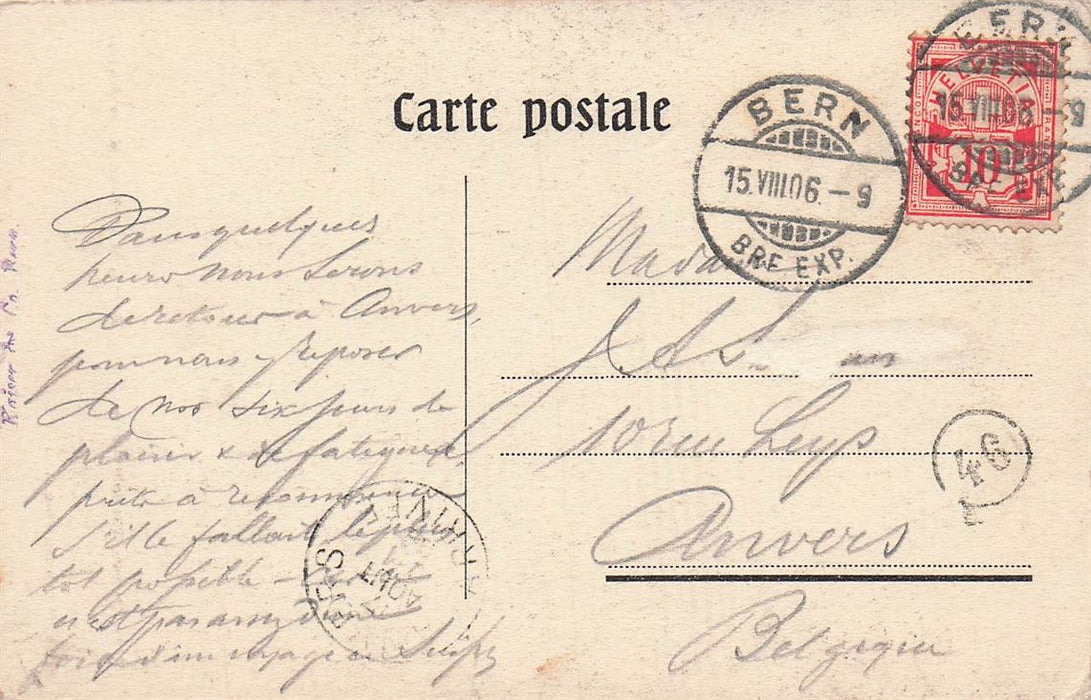 Carte postale
BERN
15.VIII.06.-9
BRF. EXP.
BERN
15.VIII.06.-9
BRF. EXP.
HELVETIA
FRANCO
10
Dans quelques
heures nous serons
de retour à Anvers,
pour nous y reposer
de nos six jours de
plaisir & de fatigues,
prête à recommencer
s'il le fallait le plus
tôt possible
n'est pas assez d'une
fois d'un voyage en
Mada
10 rue Leys
Anvers
Belgique
46
ANVERS
AOUT